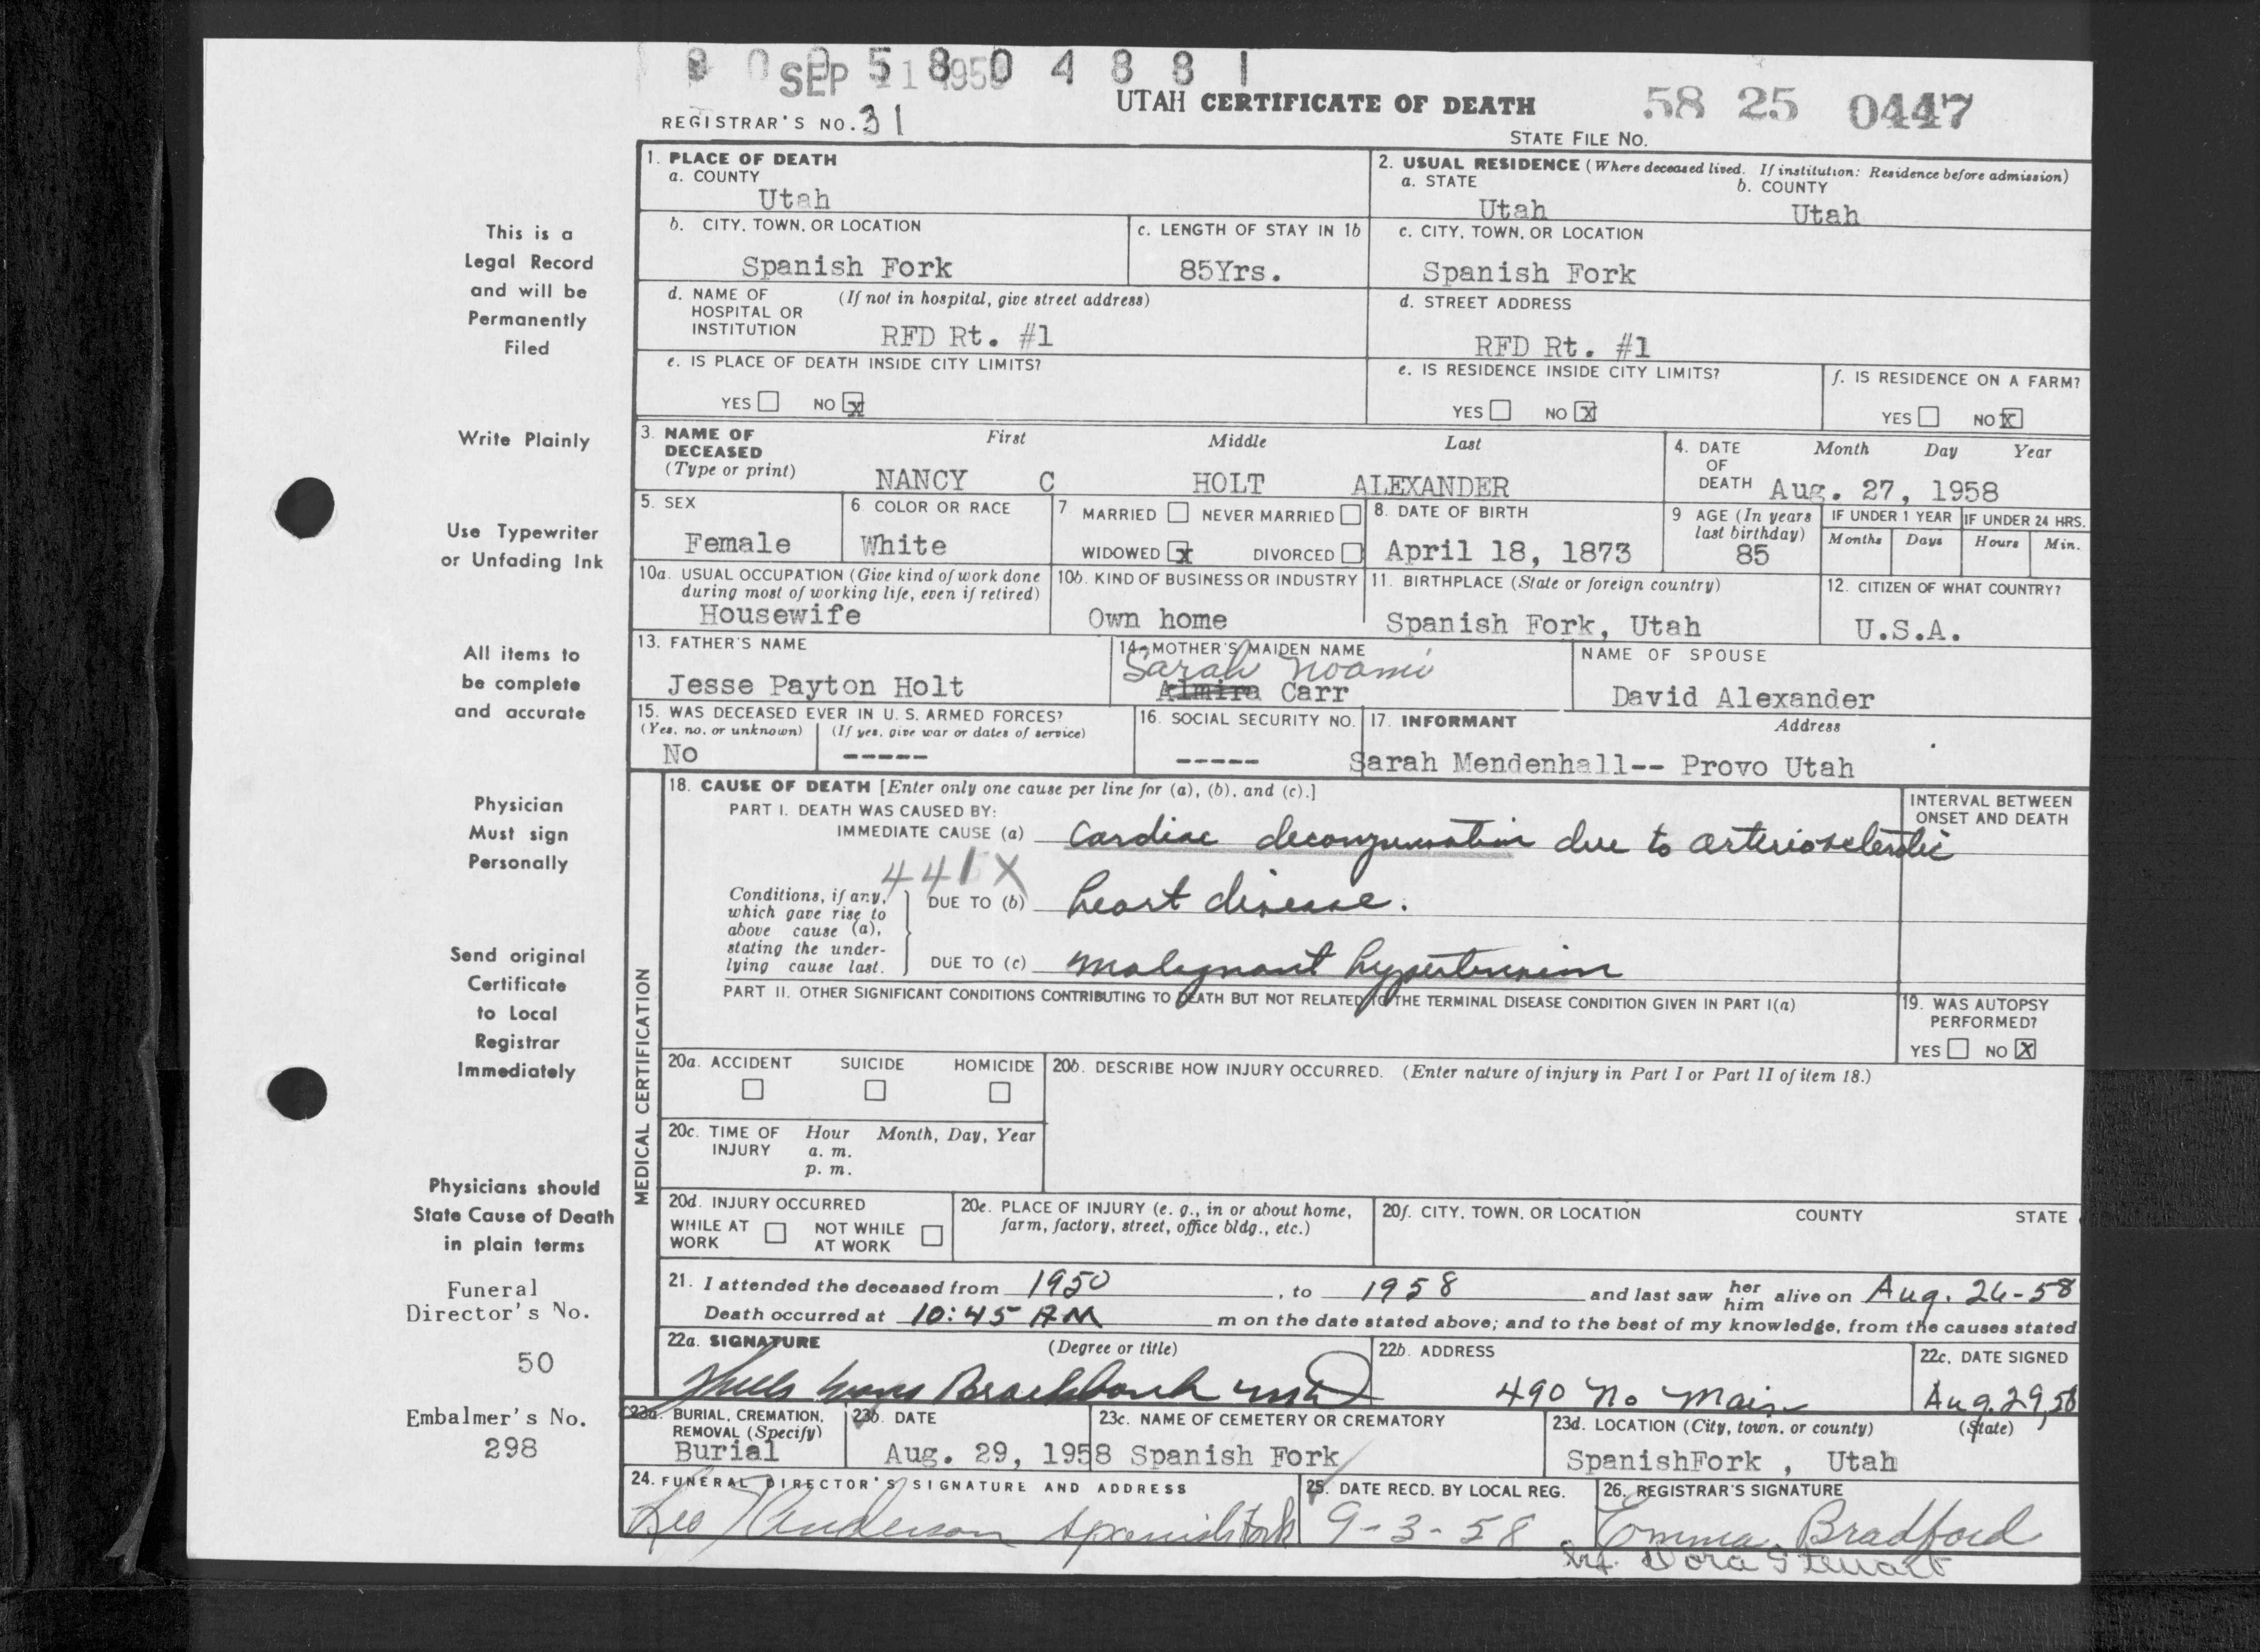 9 0 9 5 8 0 4 8 8 1
SEP 11 1958
UTAH CERTIFICATE OF DEATH
58 25 0447
REGISTRAR'S NO. 31
STATE FILE NO.
1. PLACE OF DEATH
a. COUNTY
Utah
2. USUAL RESIDENCE (Where deceased lived. If institution: Residence before admission)
a. STATE
Utah
b. COUNTY
Utah
b. CITY, TOWN, OR LOCATION
Spanish Fork
c. LENGTH OF STAY IN 1b
85Yrs.
c. CITY, TOWN, OR LOCATION
Spanish Fork
d. NAME OF HOSPITAL OR INSTITUTION
(If not in hospital, give street address)
RFD Rt. #1
d. STREET ADDRESS
RFD Rt. #1
e. IS PLACE OF DEATH INSIDE CITY LIMITS?
YES NO X
e. IS RESIDENCE INSIDE CITY LIMITS?
YES NO X
f. IS RESIDENCE ON A FARM?
YES NO X
3. NAME OF DECEASED
(Type or print)
First Middle Last
NANCY C HOLT ALEXANDER
4. DATE OF DEATH
Month Day Year
Aug. 27, 1958
5. SEX
Female
6. COLOR OR RACE
White
7 MARRIED NEVER MARRIED
WIDOWED X DIVORCED
8. DATE OF BIRTH
April 18, 1873
9 AGE (In years last birthday)
85
IF UNDER 1 YEAR
Months Days
IF UNDER 24 HRS.
Hours Min.
10a. USUAL OCCUPATION (Give kind of work done during most of working life, even if retired)
Housewife
10b. KIND OF BUSINESS OR INDUSTRY
Own home
11. BIRTHPLACE (State or foreign country)
Spanish Fork, Utah
12. CITIZEN OF WHAT COUNTRY?
U.S.A.
13. FATHER'S NAME
Jesse Payton Holt
14. MOTHER'S MAIDEN NAME
Sarah Noami
Almira Carr
NAME OF SPOUSE
David Alexander
15. WAS DECEASED EVER IN U. S. ARMED FORCES?
(Yes, no, or unknown) (If yes, give war or dates of service)
No -----
16. SOCIAL SECURITY NO.
-----
17. INFORMANT Address
Sarah Mendenhall-- Provo Utah
MEDICAL CERTIFICATION
18. CAUSE OF DEATH [Enter only one cause per line for (a), (b), and (c).]
PART I. DEATH WAS CAUSED BY:
IMMEDIATE CAUSE (a) Cardiac decompensation due to arteriosclerotic
INTERVAL BETWEEN ONSET AND DEATH
441X
Conditions, if any, which gave rise to above cause (a), stating the underlying cause last.
DUE TO (b) heart disease.
DUE TO (c) malignant hypertension
PART II. OTHER SIGNIFICANT CONDITIONS CONTRIBUTING TO DEATH BUT NOT RELATED TO THE TERMINAL DISEASE CONDITION GIVEN IN PART I(a)
19. WAS AUTOPSY PERFORMED?
YES NO X
20a. ACCIDENT SUICIDE HOMICIDE
20b. DESCRIBE HOW INJURY OCCURRED. (Enter nature of injury in Part I or Part II of item 18.)
20c. TIME OF INJURY
Hour Month, Day, Year
a. m.
p. m.
20d. INJURY OCCURRED
WHILE AT WORK NOT WHILE AT WORK
20e. PLACE OF INJURY (e. g., in or about home, farm, factory, street, office bldg., etc.)
20f. CITY, TOWN, OR LOCATION COUNTY STATE
21. I attended the deceased from 1950, to 1958 and last saw her him alive on Aug. 26-58
Death occurred at 10:45 AM m on the date stated above; and to the best of my knowledge, from the causes stated
22a. SIGNATURE (Degree or title)
22b. ADDRESS
490 No Main
22c. DATE SIGNED
Aug. 29, 58
23a. BURIAL, CREMATION, REMOVAL (Specify)
Burial
23b. DATE
Aug. 29, 1958
23c. NAME OF CEMETERY OR CREMATORY
Spanish Fork
23d. LOCATION (City, town, or county) (State)
SpanishFork , Utah
24. FUNERAL DIRECTOR'S SIGNATURE AND ADDRESS
Anderson Spanish Fork
25. DATE RECD. BY LOCAL REG.
9-3-58
26. REGISTRAR'S SIGNATURE
Emma Bradford
Dora Stewart
This is a
Legal Record
and will be
Permanently
Filed
Write Plainly
Use Typewriter
or Unfading Ink
All items to
be complete
and accurate
Physician
Must sign
Personally
Send original
Certificate
to Local
Registrar
Immediately
Physicians should
State Cause of Death
in plain terms
Funeral
Director's No.
50
Embalmer's No.
298